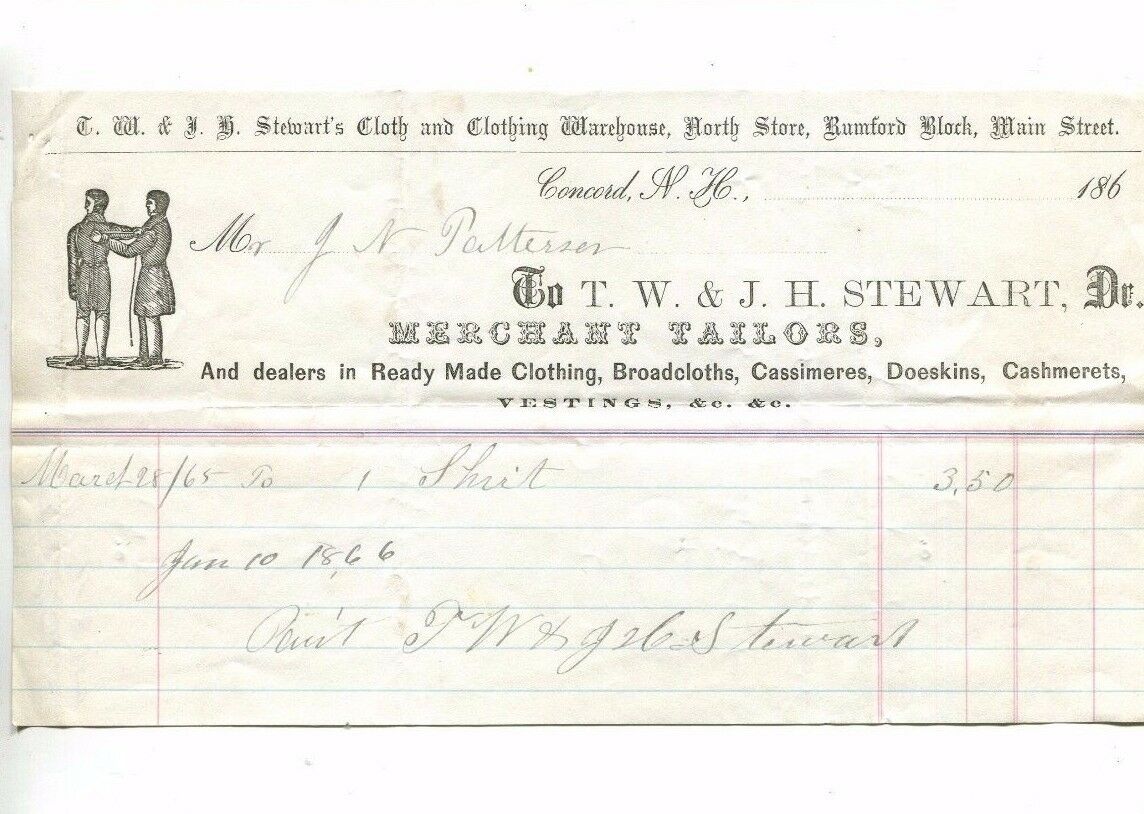 T. W. & J. H. Stewart's Cloth and Clothing Warehouse, North Store, Rumford Block, Main Street.
Concord, N. H., 186
Mr J N Patterson
To T. W. & J. H. STEWART, Dr.
MERCHANT TAILORS,
And dealers in Ready Made Clothing, Broadcloths, Cassimeres, Doeskins, Cashmerets,
VESTINGS, &c. &c.
March 28/65 To 1 Shirt 3.50
Jan 10 1866
Rec't T W & J H Stewart